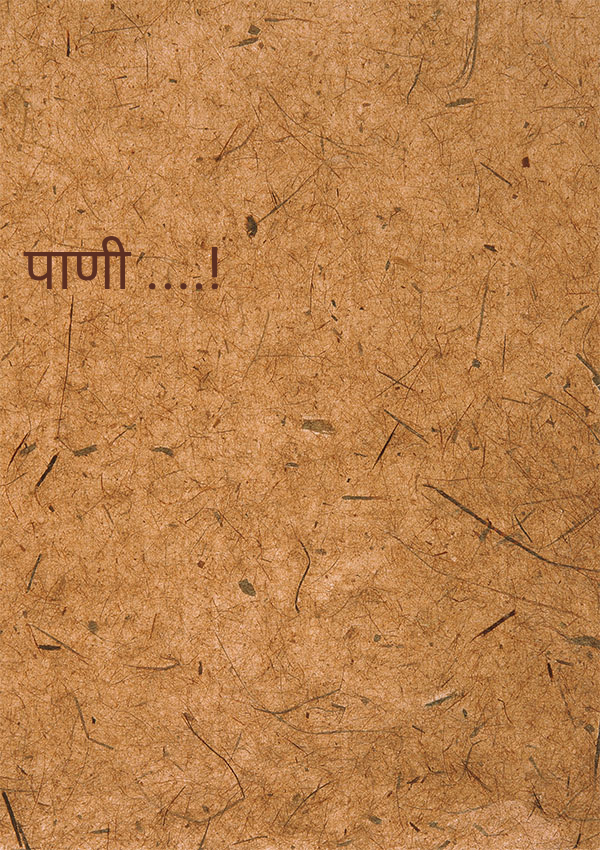 पाणी ....!